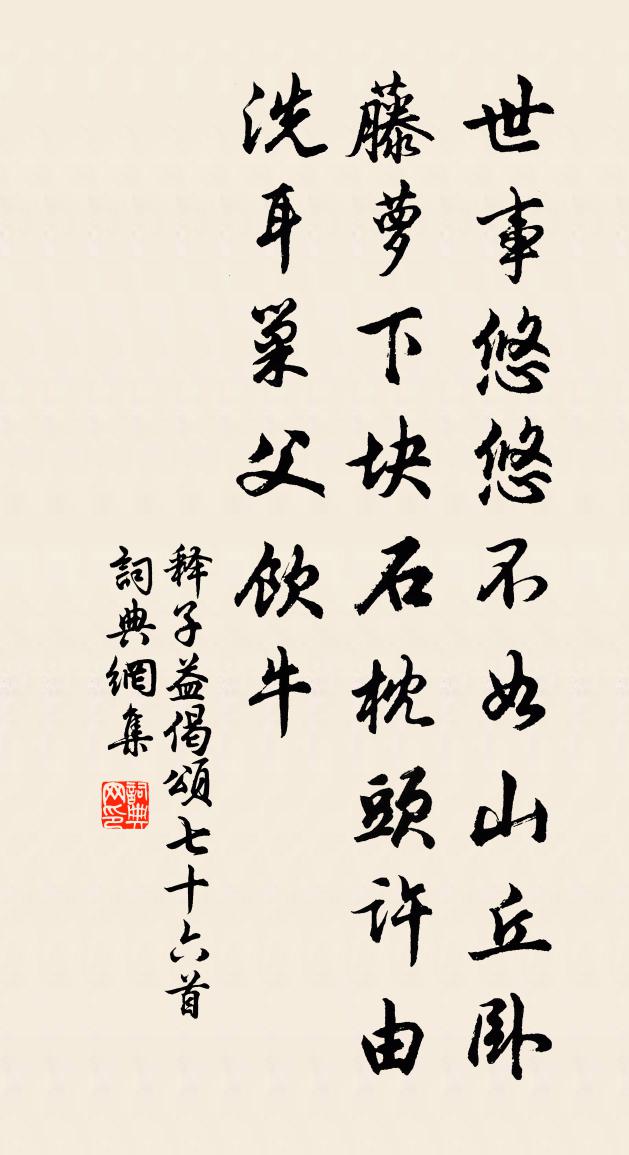 世事悠悠不如山丘卧
藤萝下块石枕頭许由
洗耳巢父飲牛
释子益偈頌七十六首
詞典網集
詞典
网印